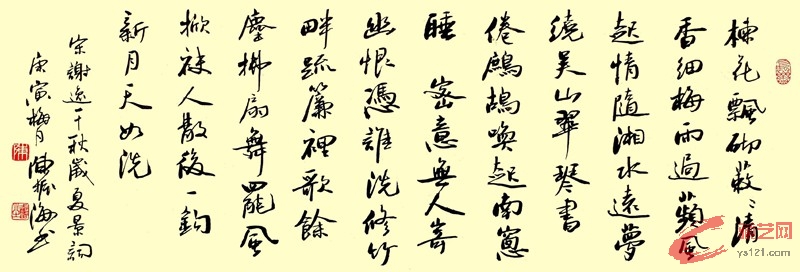 楝花飄砌蔌〻清
香細梅雨過蘋風
起情隨湘水遠夢
繞吴山翠琴書
倦鷓鴣喚起南窗
睡 密意無人寄
幽恨憑誰洗修竹
畔疏簾裡歌餘
塵拂扇舞罷風
掀袂人散後一鈎
新月天如洗
宋謝逸千秋歲夏景詞
庚寅梅月陳海书
艺网
ys121.com